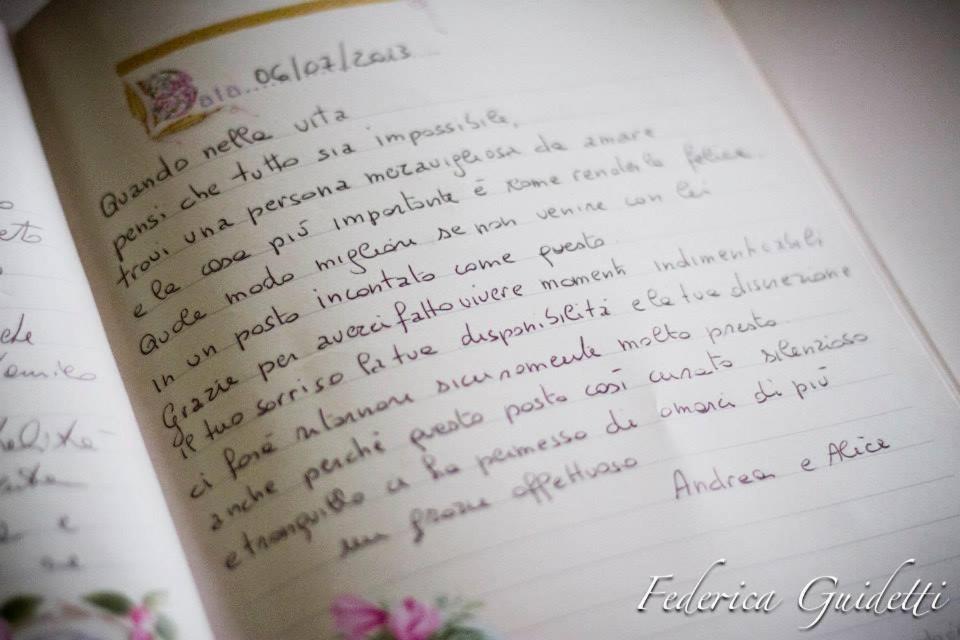 Data.... 06/07/2013
Quando nella vita
pensi che tutto sia impossibile,
trovi una persona meravigliosa da amare
e la cosa più importante è come renderla felice.
Quale modo migliore se non venire con lei
in un posto incantato come questo.
Grazie per averci fatto vivere momenti indimenticabili
il tuo sorriso la tua disponibilità e la tua discrezione
ci farà ritornare sicuramente molto presto.
anche perché questo posto così curato silenzioso
e tranquillo ci ha permesso di amarci di più
un grazie affettuoso
Andrea e Alice
Federica Guidetti